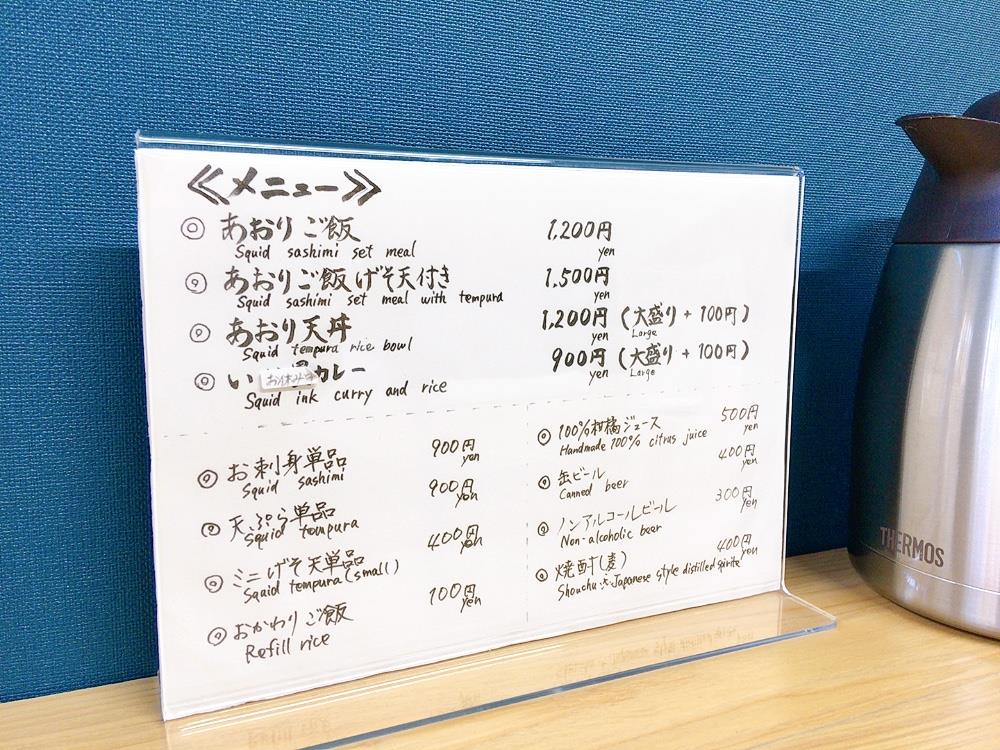 ≪メニュー≫
◎ あおりご飯 1,200円
Squid sashimi set meal yen
◎ あおりご飯げそ天付き 1,500円
Squid sashimi set meal with tempura yen
◎ あおり天丼 1,200円 (大盛り + 100円)
Squid tempura rice bowl yen Large
◎ い お休み中 カレー 900円 (大盛り + 100円)
Squid ink curry and rice yen Large
◎ お刺身単品 900円
Squid sashimi yen
◎ 天ぷら単品 900円
Squid tempura yen
◎ ミニげそ天単品 400円
Squid tempura (small) yen
◎ おかわりご飯 100円
Refill rice yen
◎ 100%柑橘ジュース 500円
Handmade 100% citrus juice yen
◎ 缶ビール 400円
Canned beer yen
◎ ノンアルコールビール 300円
Non-alcoholic beer yen
◎ 焼酎(麦) 400円
Shouchu Japanese style distilled spirits yen
THERMOS